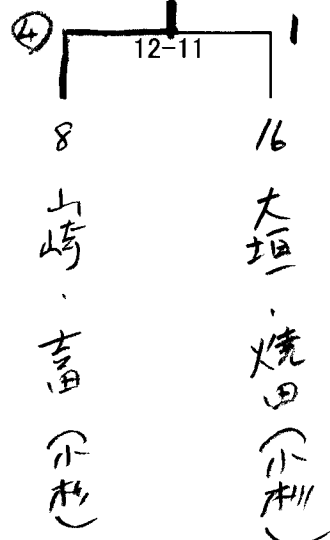 ④ 1
12-11
8 山崎・ (小杉)
16 大垣・焼田 (小杉)